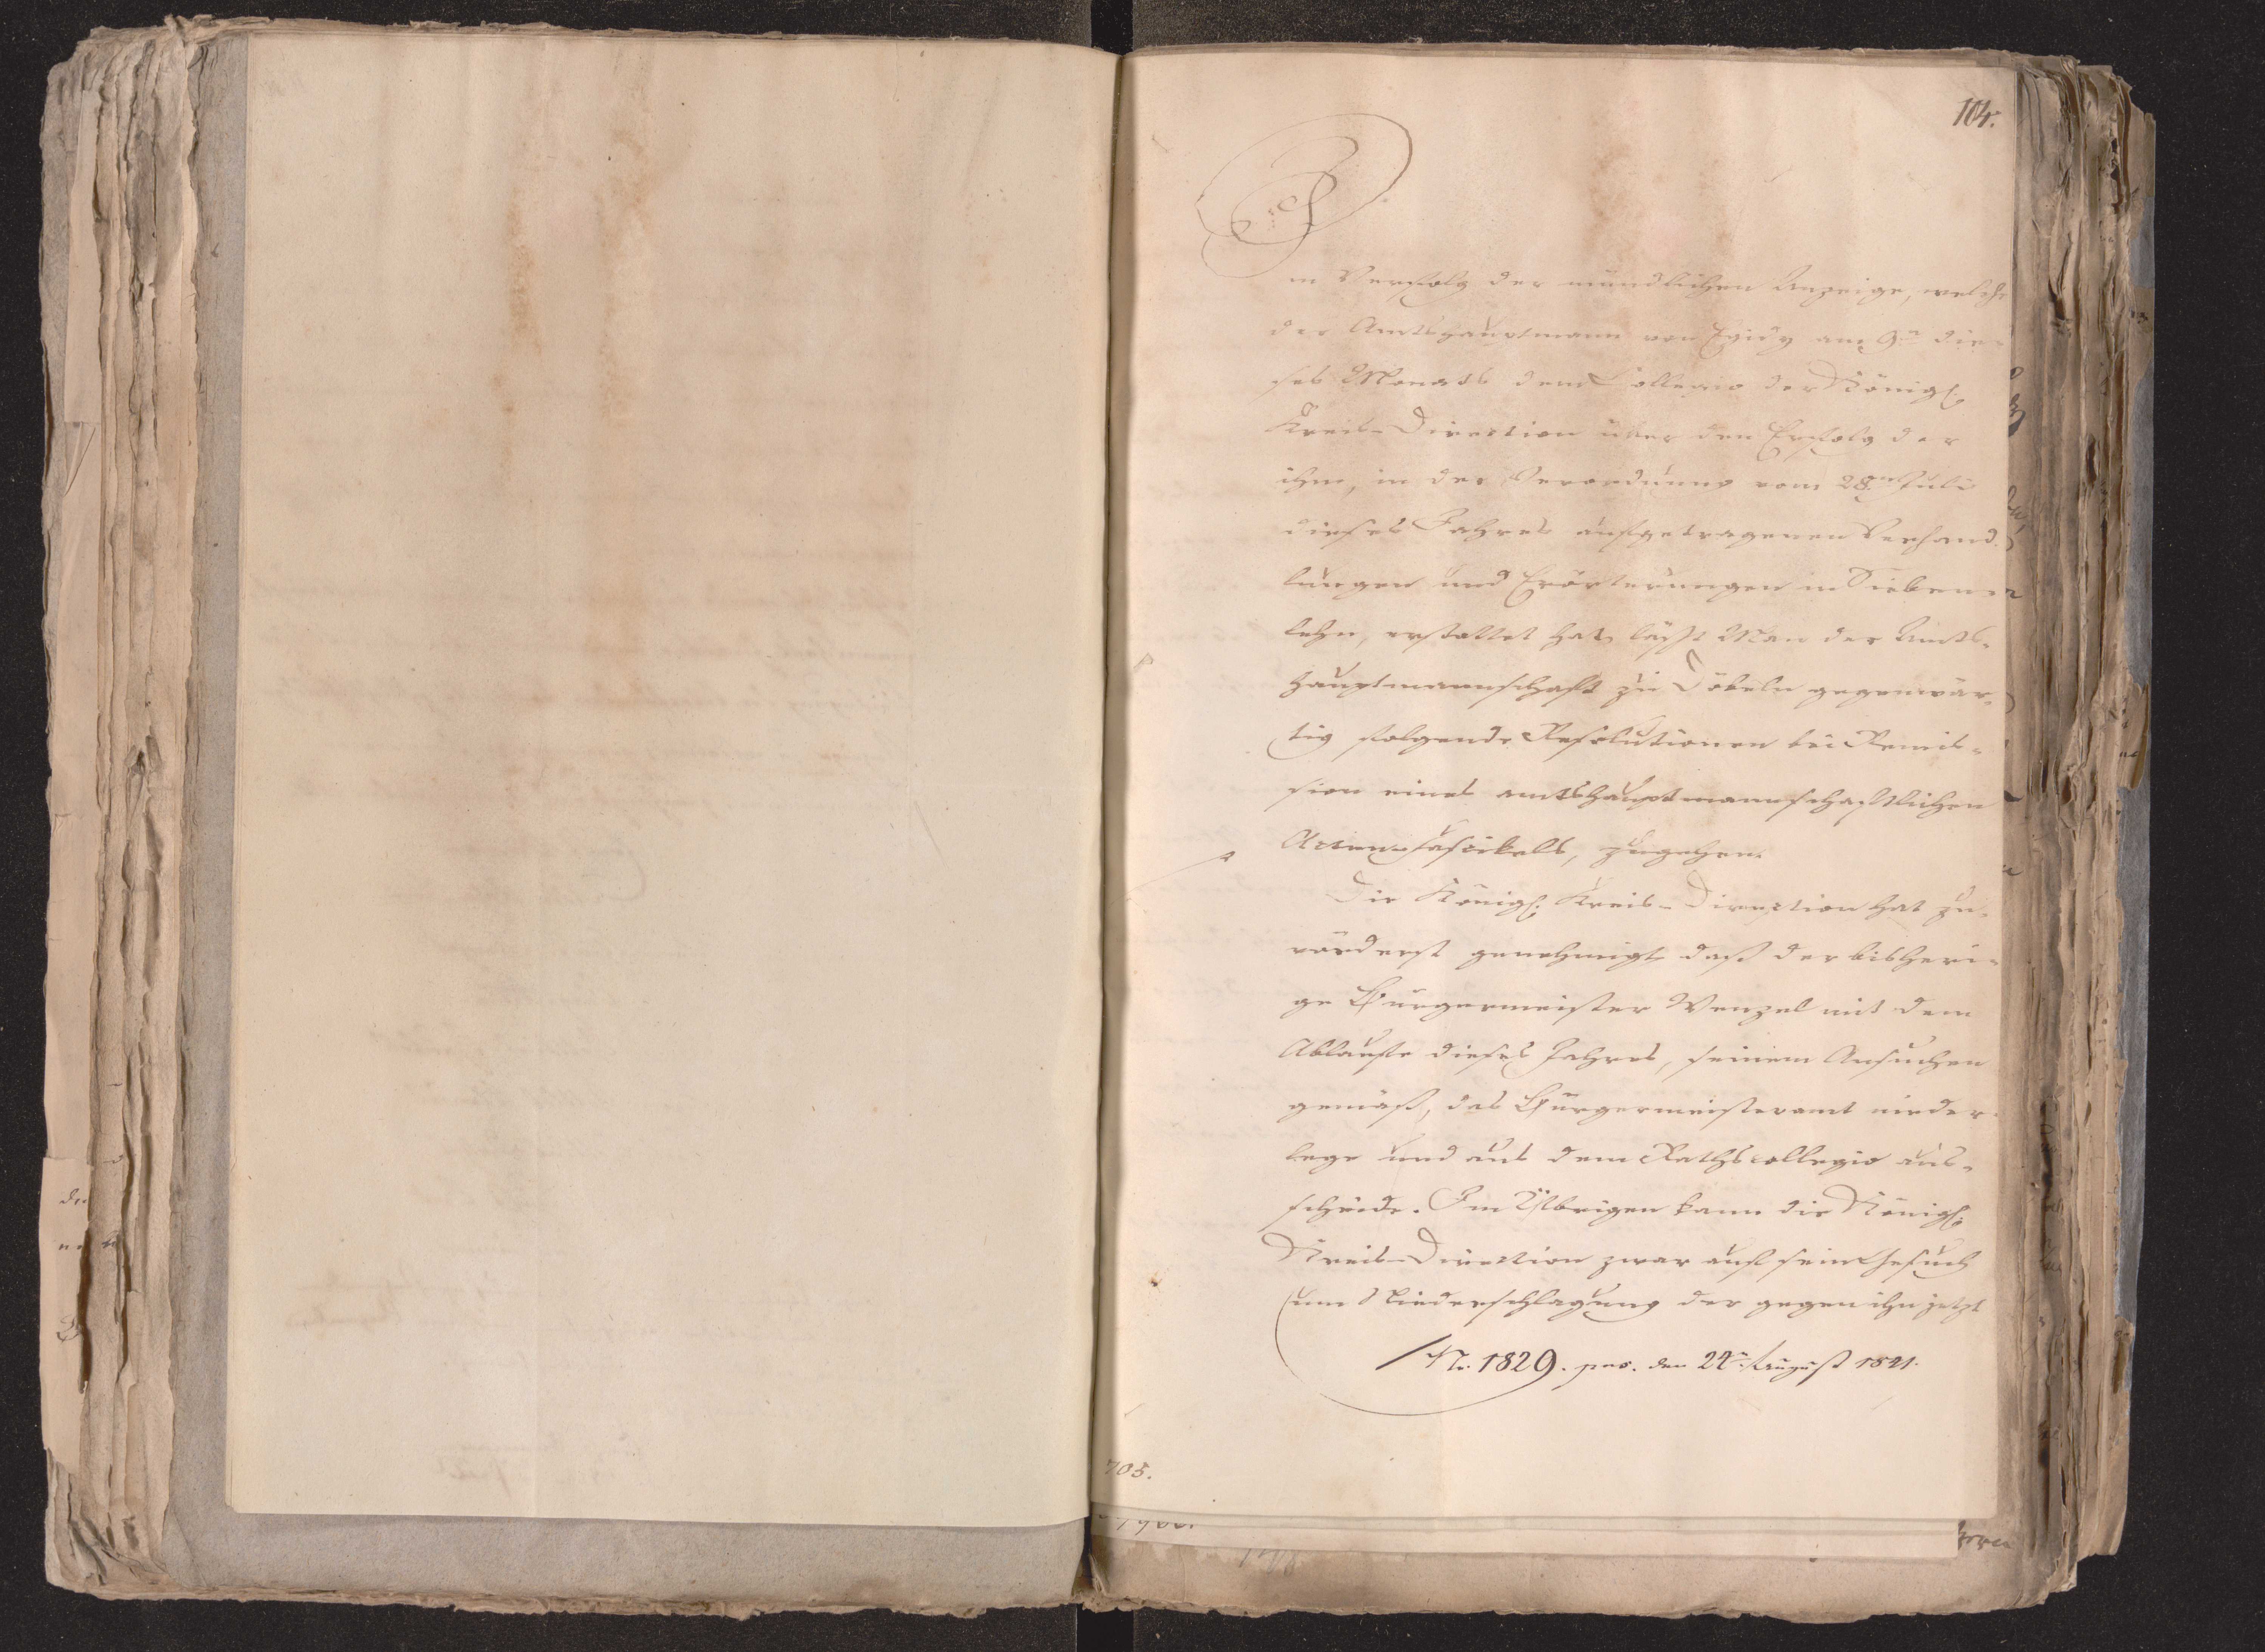 104.
Im Verfolg der mündlichen Anzeige, welche
der Amtshauptmann von Egidy am 9n die-
ses Monats dem Collegio der Königl.
Kreis-Direction über den Erfolg der
ihm, in der Verordnung vom 28n Juli
dieses Jahres aufgetragenen Verhand-
lungen und Erörterungen in Sieben-
lehn, erstattet hat, läßt Man der Amts-
hauptmannschaft zu Döbeln gegenwär-
tig folgende Resolutionen bei Remis-
sion eines amtshauptmannschaftlichen
Actenfascikels, zugehen.
Die Königl. Kreis-Direction hat zu-
vörderst genehmigt, daß der bisheri-
ge Bürgermeister Wenzel mit dem
Ablaufe dieses Jahres, seinem Ansuchen
gemäß, das Bürgermeisteramt nieder-
lege und aus dem Rathscollegio aus-
scheide. Im Übrigen kann die Königl.
Kreis-Direction zwar auf sein Gesuch
um Niederschlagung der gegen ihn jetzt
Nr. 1829. prs. den 22n August 1841.
705.